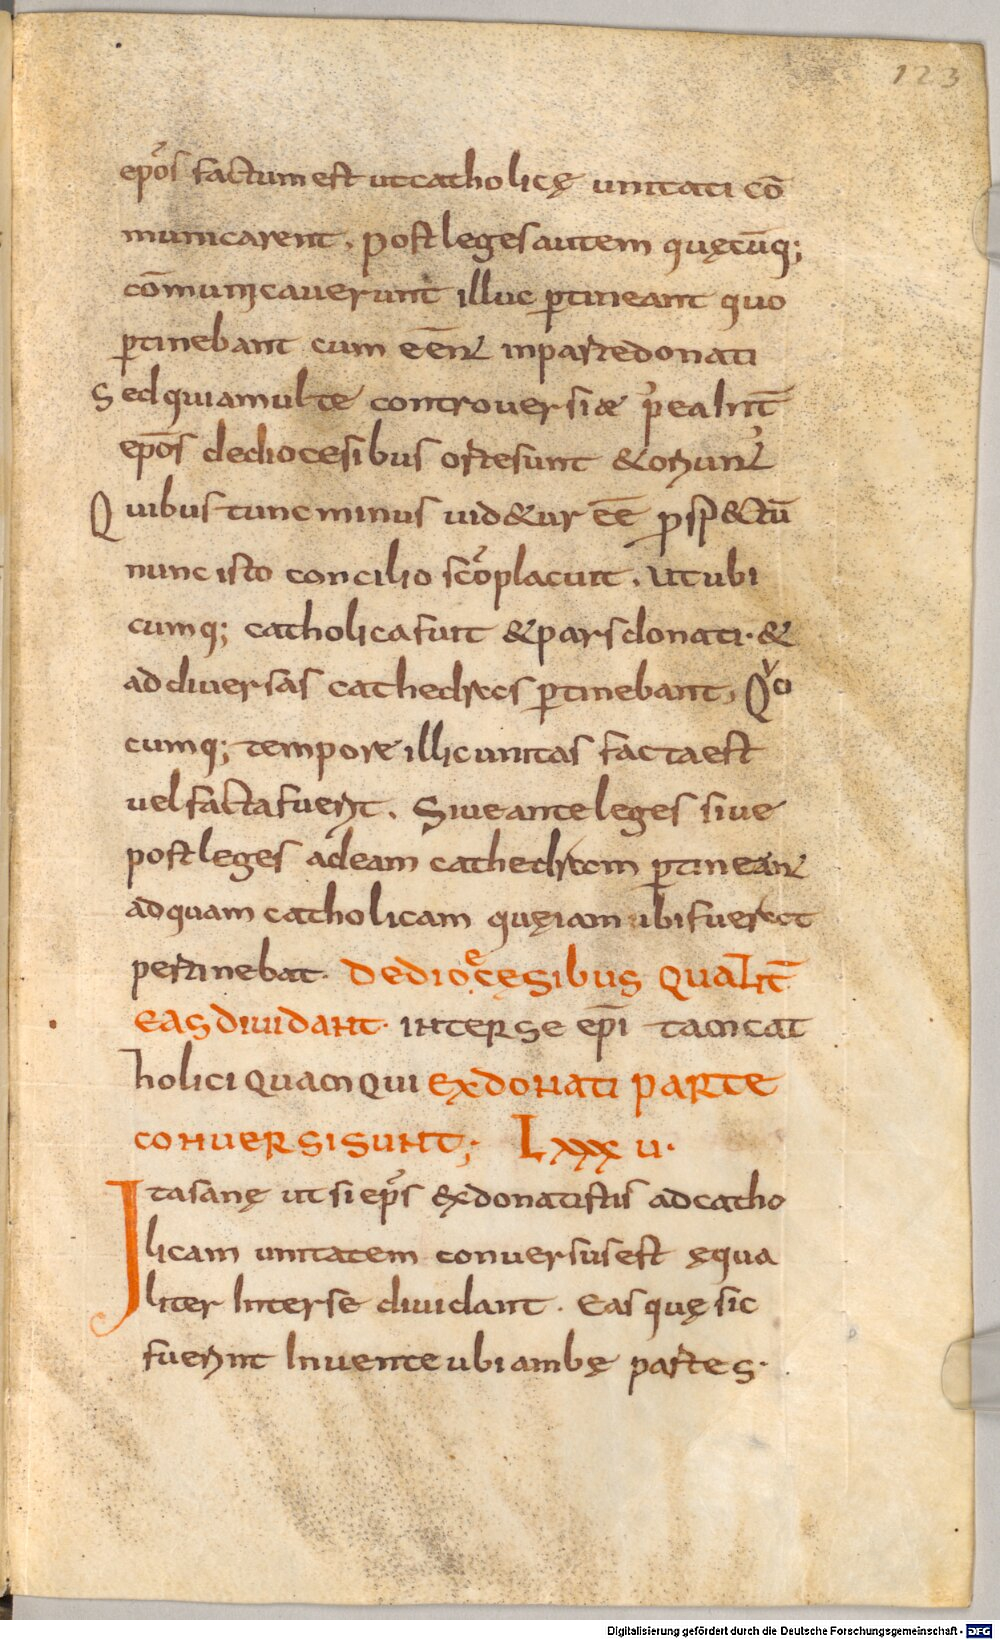 123
ep̄os factum est ut catholicę unitati cō
municarent. post leges autem quęcūq;
cōmunicauerunt illuc ꝑtineant quo
ꝑtinebant cum eēnt in parte donati
Sed quia multe controuersiae p̉ea int̄
ep̄os de diocesibus orte sunt & oriunt᷒
Quibus tunc minus uid&ur eē ꝓsp&tū
nunc isto concilio sc̄o placuit. ut ubi
cumq; catholica fuit & pars donati. &
ad diuersas cathedras ꝑtinebant, Quo
cumq; tempore illic unitas facta est
uel facta fuerit. Siue ante leges siue
post leges ad eam cathedram ꝑtineant
ad quam catholicam quę iam ubi fuerat
pertinebat. DE DIOCĘSIBUS QUALIT̄
EAS DIVIDANT. INTER SE EP̄I TAM CAT
HOLICI QUAM QUI EX DONATI PARTE
CONVERSI SUNT; LXXXV.
Ita sanę ut si ep̄s ex donatistis ad catho
licam unitatem conuersus est ęqua
liter Inter se diuidant. Eas quę sic
fuerint Inuente ubi ambę partes.
Digitalisierung gefördert durch die Deutsche Forschungsgemeinschaft - DFG